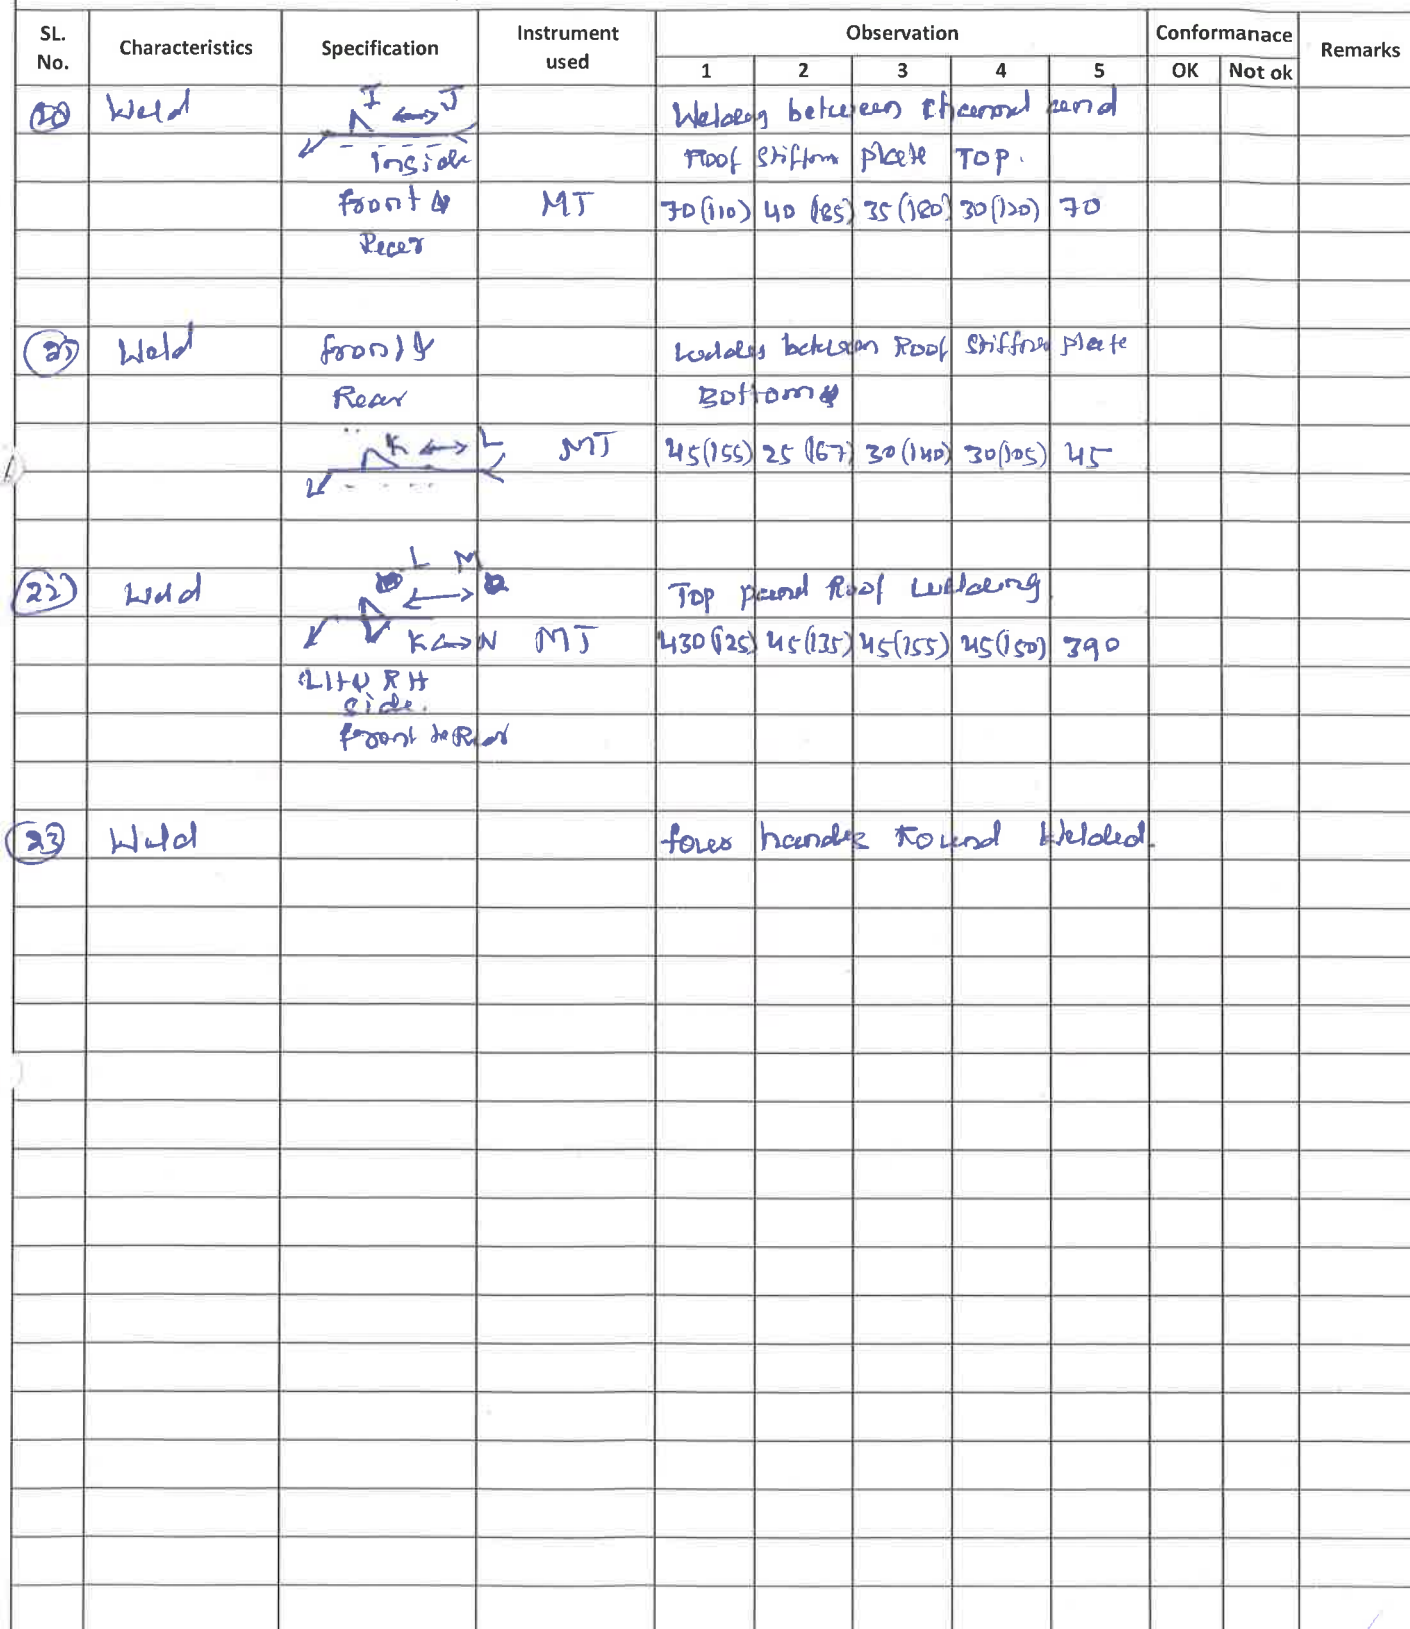 SL. No. Characteristics Specification Instrument used Observation Conformanace Remarks
1 2 3 4 5 OK Not ok
20 Weld I ↔ J Welding between Channel and
Inside Roof Stiffm plate TOP.
front & MT 70(110) 40(185) 35(180) 30(120) 70
Rear
21 Weld front & between Roof Stiffner plate
Rear Bottom
K ↔ L MT 45(155) 25(167) 30(140) 30(105) 45
L M
22 Weld ↔ Top panel Roof Welding
K ↔ N MT 430(125) 45(135) 45(155) 45(150) 390
LH & RH
side.
front to Rear
23 Weld handle round Welded.